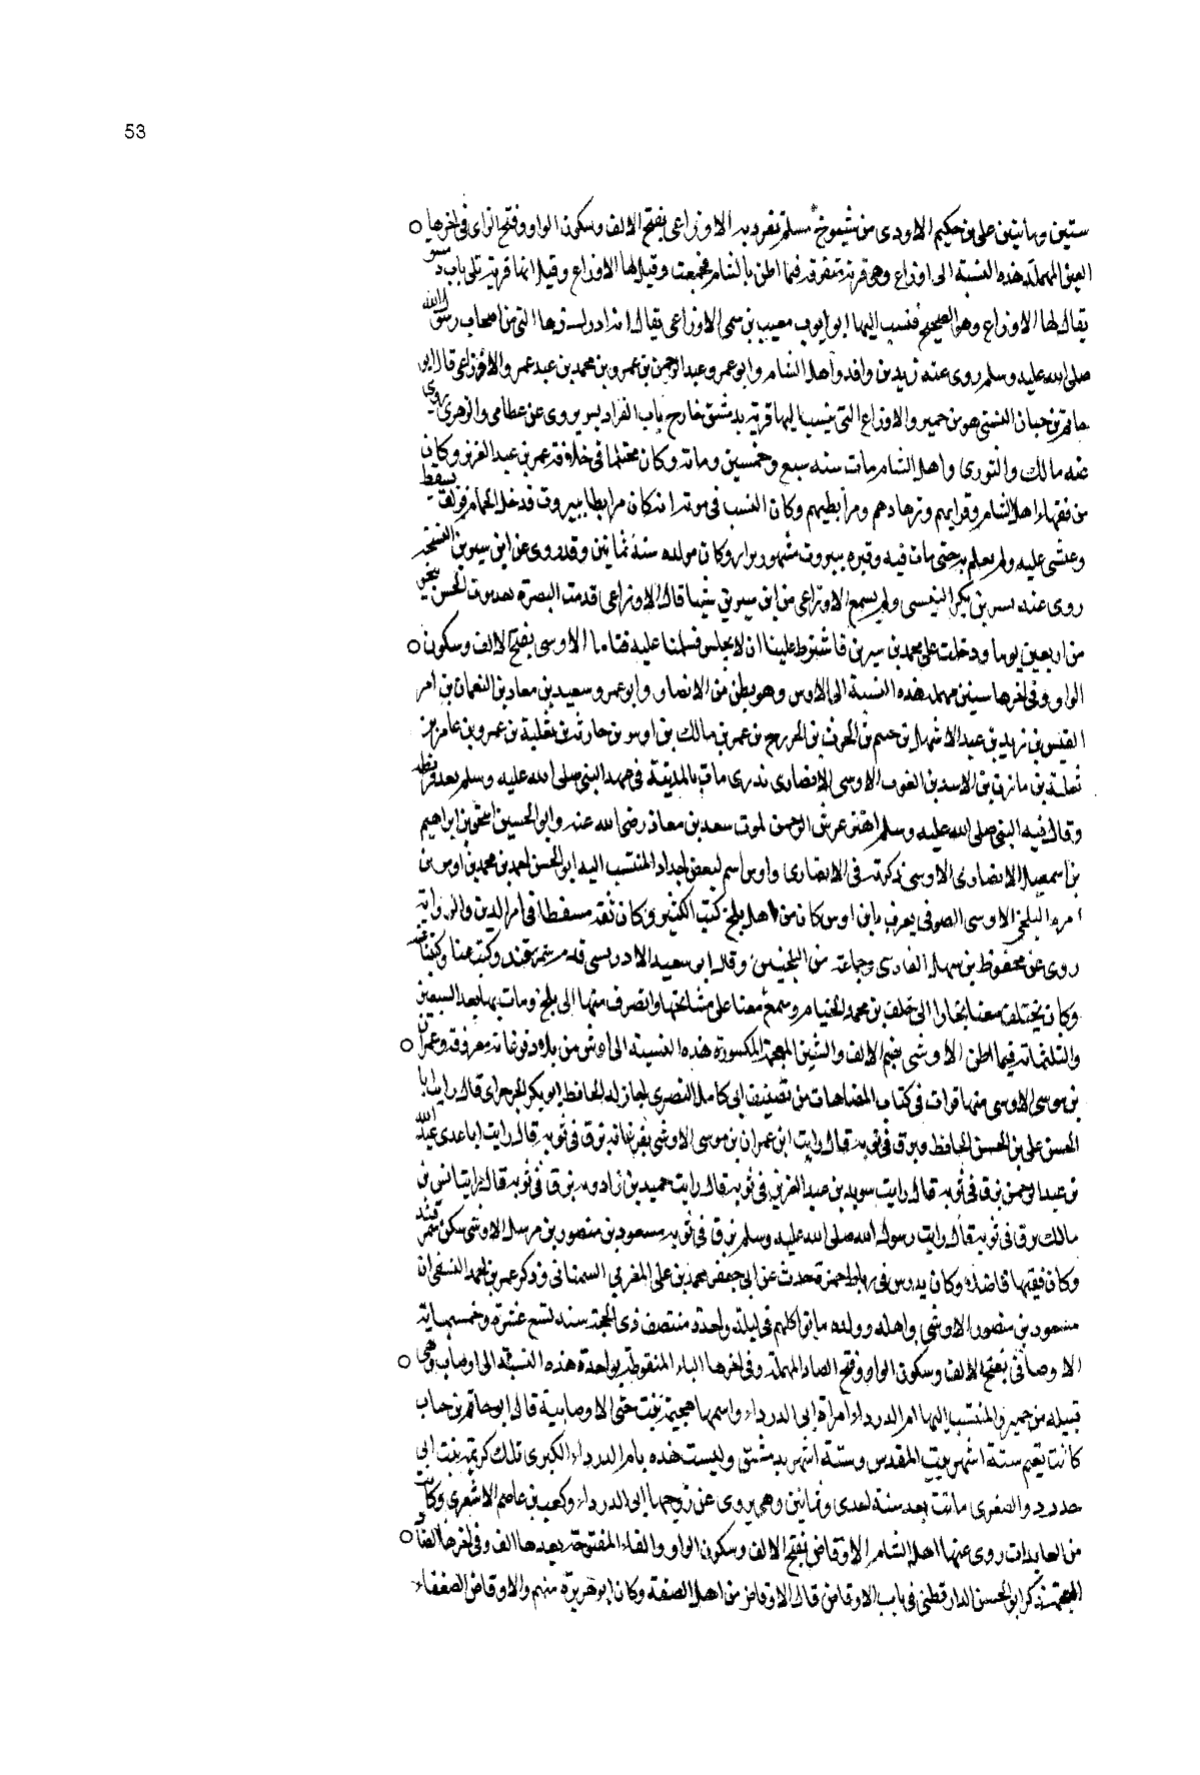 53
ستين ومأتين علي بن حكيم الاودي من شيوخ مسلم تفرد به الاوزاعي بفتح الالف وسكون الواو وفتح الزاي في اخرها
العين المهملة هذه النسبة الى اوزاع وهي قرية متفرقة فيما اظن بالشام فجمعت وقيل لها الاوزاع وقيل انها قرية تلي باب دمشق
يقال لها الاوزاع وهو الصحيح فنسب اليها ابو ايوب مغيث بن سمي الاوزاعي يقال انه ادرك زها الف من اصحاب رسول الله
صلى الله عليه وسلم روى عنه زيد بن واقد واهل الشام وابو عمرو عبد الرحمن بن عمرو بن محمد بن عبد عمرو الاوزاعي قال ابو
حاتم بن حبان البستي هو من حمير والاوزاع التي ينسب اليها قرية بدمشق خارج باب الفراديس يروى عن عطا والزهري روى
عنه مالك والثوري واهل الشام مات سنه سبع وخمسين ومائة وكان محتلما في خلافة عمر بن عبد العزيز وكان
من فقهاء اهل الشام وقرايهم وزهادهم ومرابطيهم وكان السبب في موته انه كان مرابطا ببيروت فدخل الحمام فزلق فسقط
وغشي عليه ولم يعلم به حتى مات فيه وقبره ببيروت مشهور يزار وكان مولده سنة ثمانين وقد روى عن ابن سيرين نسخة
روى عنه بشر بن بكر التنيسي ولم يسمع الاوزاعي من ابن سيرين شيئا قال الاوزاعي قدمت البصرة بعد موت الحسن بنحو
من اربعين يوما ودخلت على محمد بن سيرين فاشترط علينا ان لا يجلس فسلمنا عليه قياما الاوسي بفتح الالف وسكون
الواو وفي اخرها سين مهملة هذه النسبة الى الاوس وهو بطن من الانصار وابو عمرو سعد بن معاذ بن النعمان بن امر
القيس بن زيد بن عبد الاشهل بن جشم بن الحرث بن الخزرج بن عمرو بن مالك بن اوس بن حارثة بن ثعلبة بن عمرو بن عامر بن
ثعلبة بن مازن بن الاسد بن الغوث الاوسي الانصاري بدري مات بالمدينة في عهد النبي صلى الله عليه وسلم بعد قريظة
وقال فيه النبي صلى الله عليه وسلم اهتز عرش الرحمن لموت سعد بن معاذ رضي الله عنه وابو الحسين اسحق بن ابراهيم
بن اسمعيل الانصاري الاوسي ذكرته في الانصاري واوس اسم لبعض اجداد المنتسب اليه ابو الحسن احمد بن محمد بن اوس بن
البلخي الاوسي الصوفي يعرف بابن اوس كان من اهل بلخ كتب الكثير وكان ثقة في امر الدين والرواية
روى عن محفوظ بن سهل الفارسي وجماعة من البلخيين وقال ابو سعيد الادريسي قدم سمرقند وكتب عنا وكتبنا عنه
وكان يختلف معنا بخارا الى خلف بن محمد الخيام وسمع معنا على مشايخها وانصرف منها الى بلخ ومات بها بعد السبعين
والثلثمائة فيما اظن الاوشي بضم الالف والشين المعجمة المكسورة هذه النسبة الى اوش من بلاد فرغانة معروفة وعمران
بن موسى الاوسي منها قرات في كتاب المضاهات من تصنيف ابي كامل البصري اجاز له الحافظ ابو بكر الجرجراي قال رايت ابا
الحسن علي بن الحسن الحافظ وبزق في ثوبه قال رايت ابن عمران بن موسى الاوشي بفرغانة بزق في ثوبه قال رايت ابا عدي عبد الله
بن عبد الرحمن بزق في ثوبه قال رايت سويد بن عبد العزيز في ثوبه قال رايت حميد بن زادويه بزق في ثوبه قال رايت انس بن
مالك بزق في ثوبه قال رايت رسول الله صلى الله عليه وسلم بزق في ثوبه مسعود بن منصور بن مرسل الاوشي سكن سمرقند
وكان فقيها فاضلا وكان يدرس في رباط حمزة حدث عن ابي جعفر محمد بن علي المغربي السمناني وذكر عمر بن محمد النسفي ان
مسعود بن منصور الاوشي واهله وولده ماتوا كلهم في ليلة واحدة منتصف ذي الحجة سنه تسع عشرة وخمسمائة
الاوصابي بفتح الالف وسكون الواو وفتح الصاد المهملة وفي اخرها الباء المنقوطة بواحدة هذه النسبة الى اوصاب وهي
قبيله من حمير والمنتسب اليها ام الدرداء امراة ابي الدرداء واسمها هجيمة بنت حتى الاوصابية قال ابو حاتم بن حبان
كانت تقيم ستة اشهر ببيت المقدس وستة اشهر بدمشق وليست هذه بام الدرداء الكبرى تلك كريمة بنت ابي
حدرد والصغرى ماتت بعد سنة احدى وثمانين وهي يروى عن زوجها ابي الدرداء وكعب بن عاصم الاشعري وكانت
من العابدات روى عنها اهل الشام الاوفاضي بفتح الالف وسكون الواو والفاء المفتوحة بعدها الف وفي اخرها الضاد
المعجمة ذكر ابو الحسن الدارقطني في باب الاوفاض قال الاوفاض من اهل الصفة وكان ابو هريرة منهم والاوفاض الضعفاء